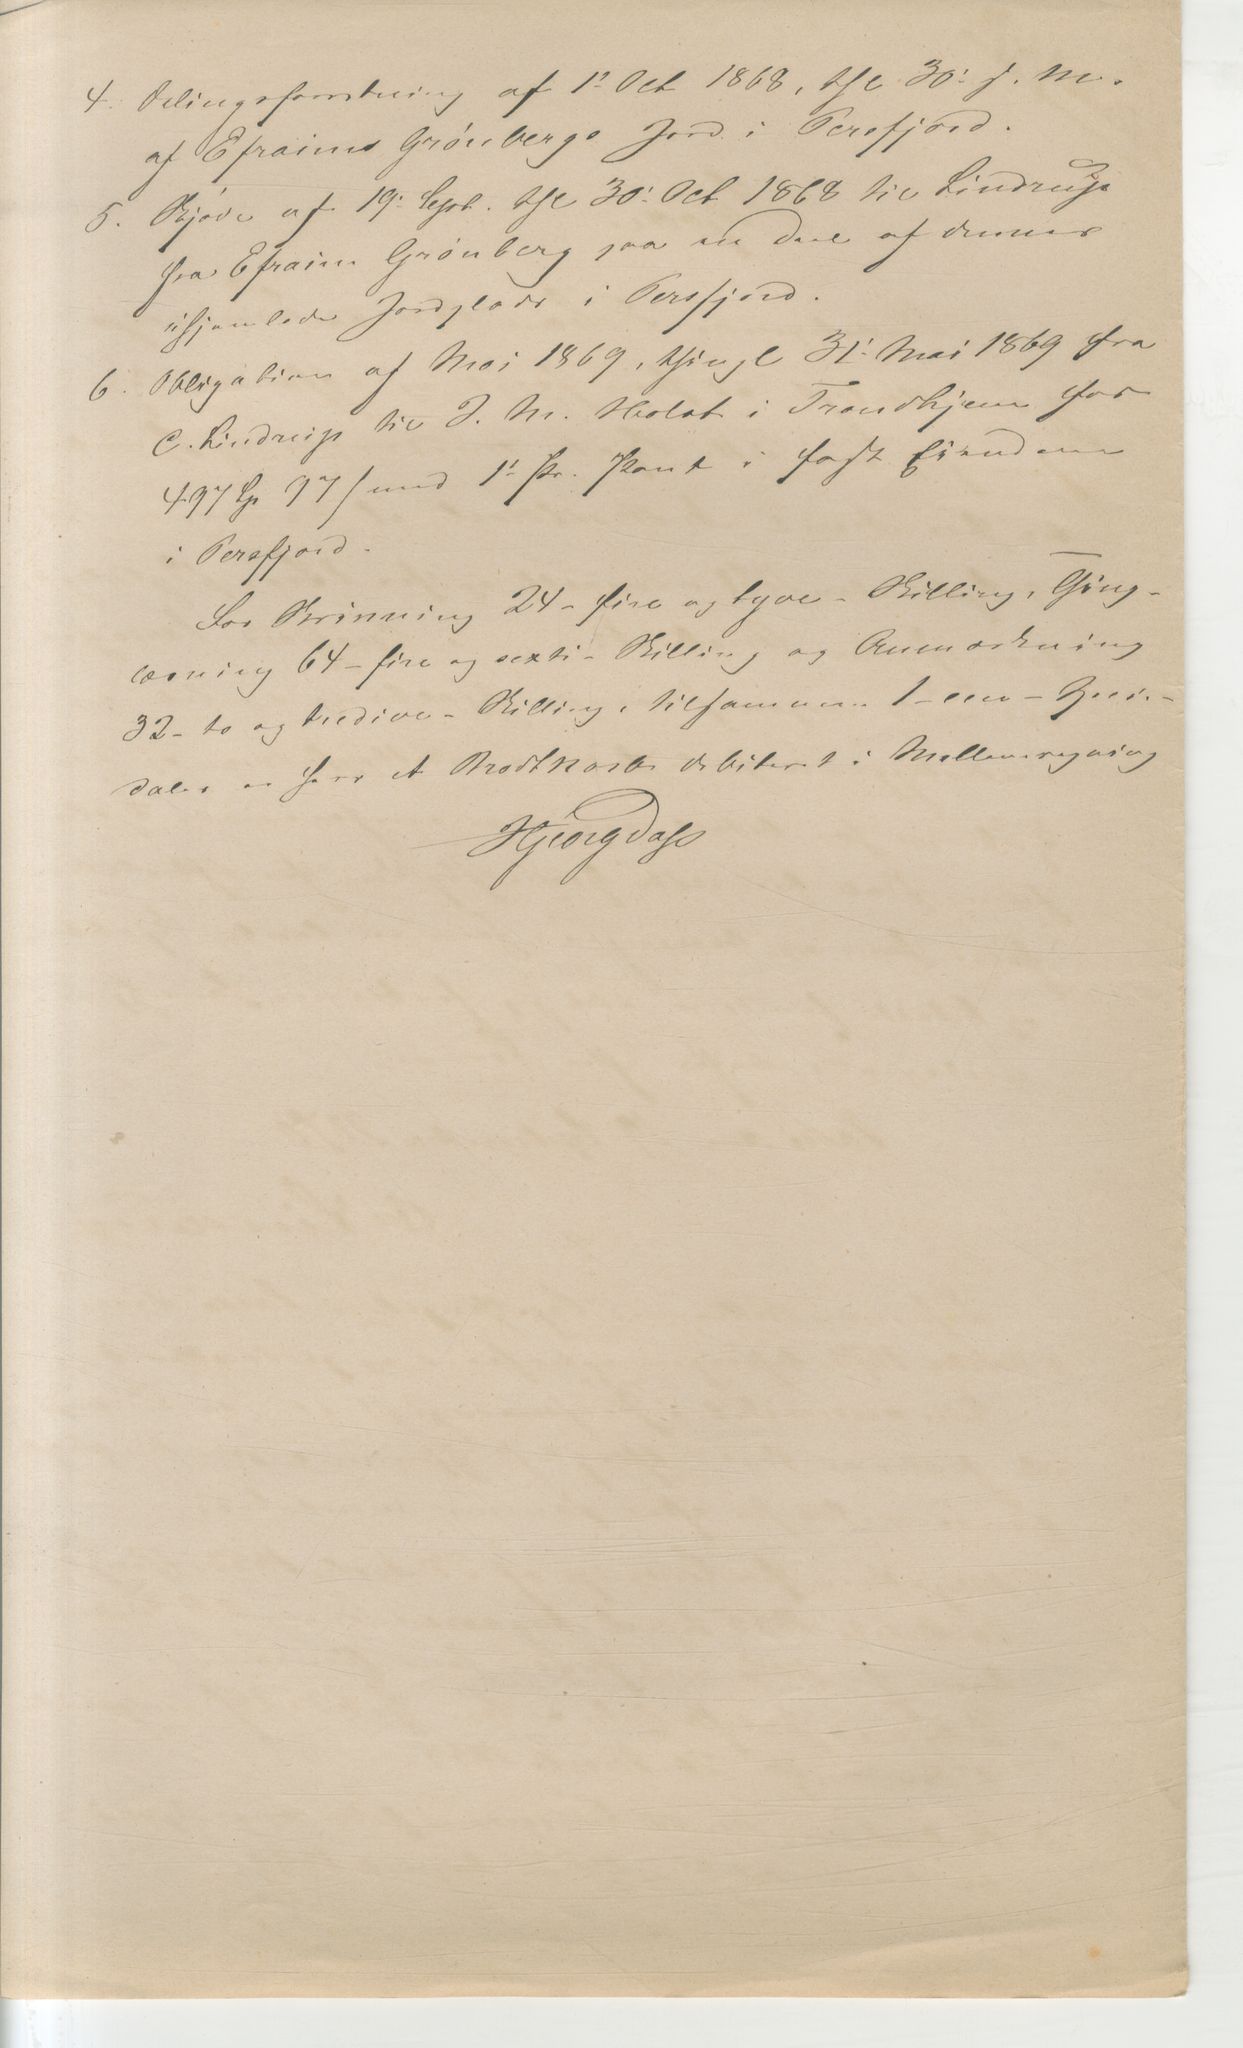 4. Delingsforretning af 1' Oct 1868, thl 30' s. M.
af Efraims Grønbergs Jord i Persfjord.
5. Skjøde af 19' Sept. thl 30' Oct 1868 til Lindrup
fra Efraim Grønberg paa en Deel af dennes
Jordplads i Persfjord.
6. Obligation af Mai 1869, thingl 31' Mai 1869 fra
C. Lindrup til J. M. Holst i Trondhjem for
497 Sp 97 s med 1' Pr. Pant i fast Eiendom
i Persfjord.
For Skrivning 24 - fire og tyve - Skilling, Thing-
læsning 64 - fire og sexti - Skilling og Anmærkning
32 - to og tredive - Skilling, tilsammen 1 - een - Speci-
daler er Herr A Brodtkorb debiteret i Mellemregning